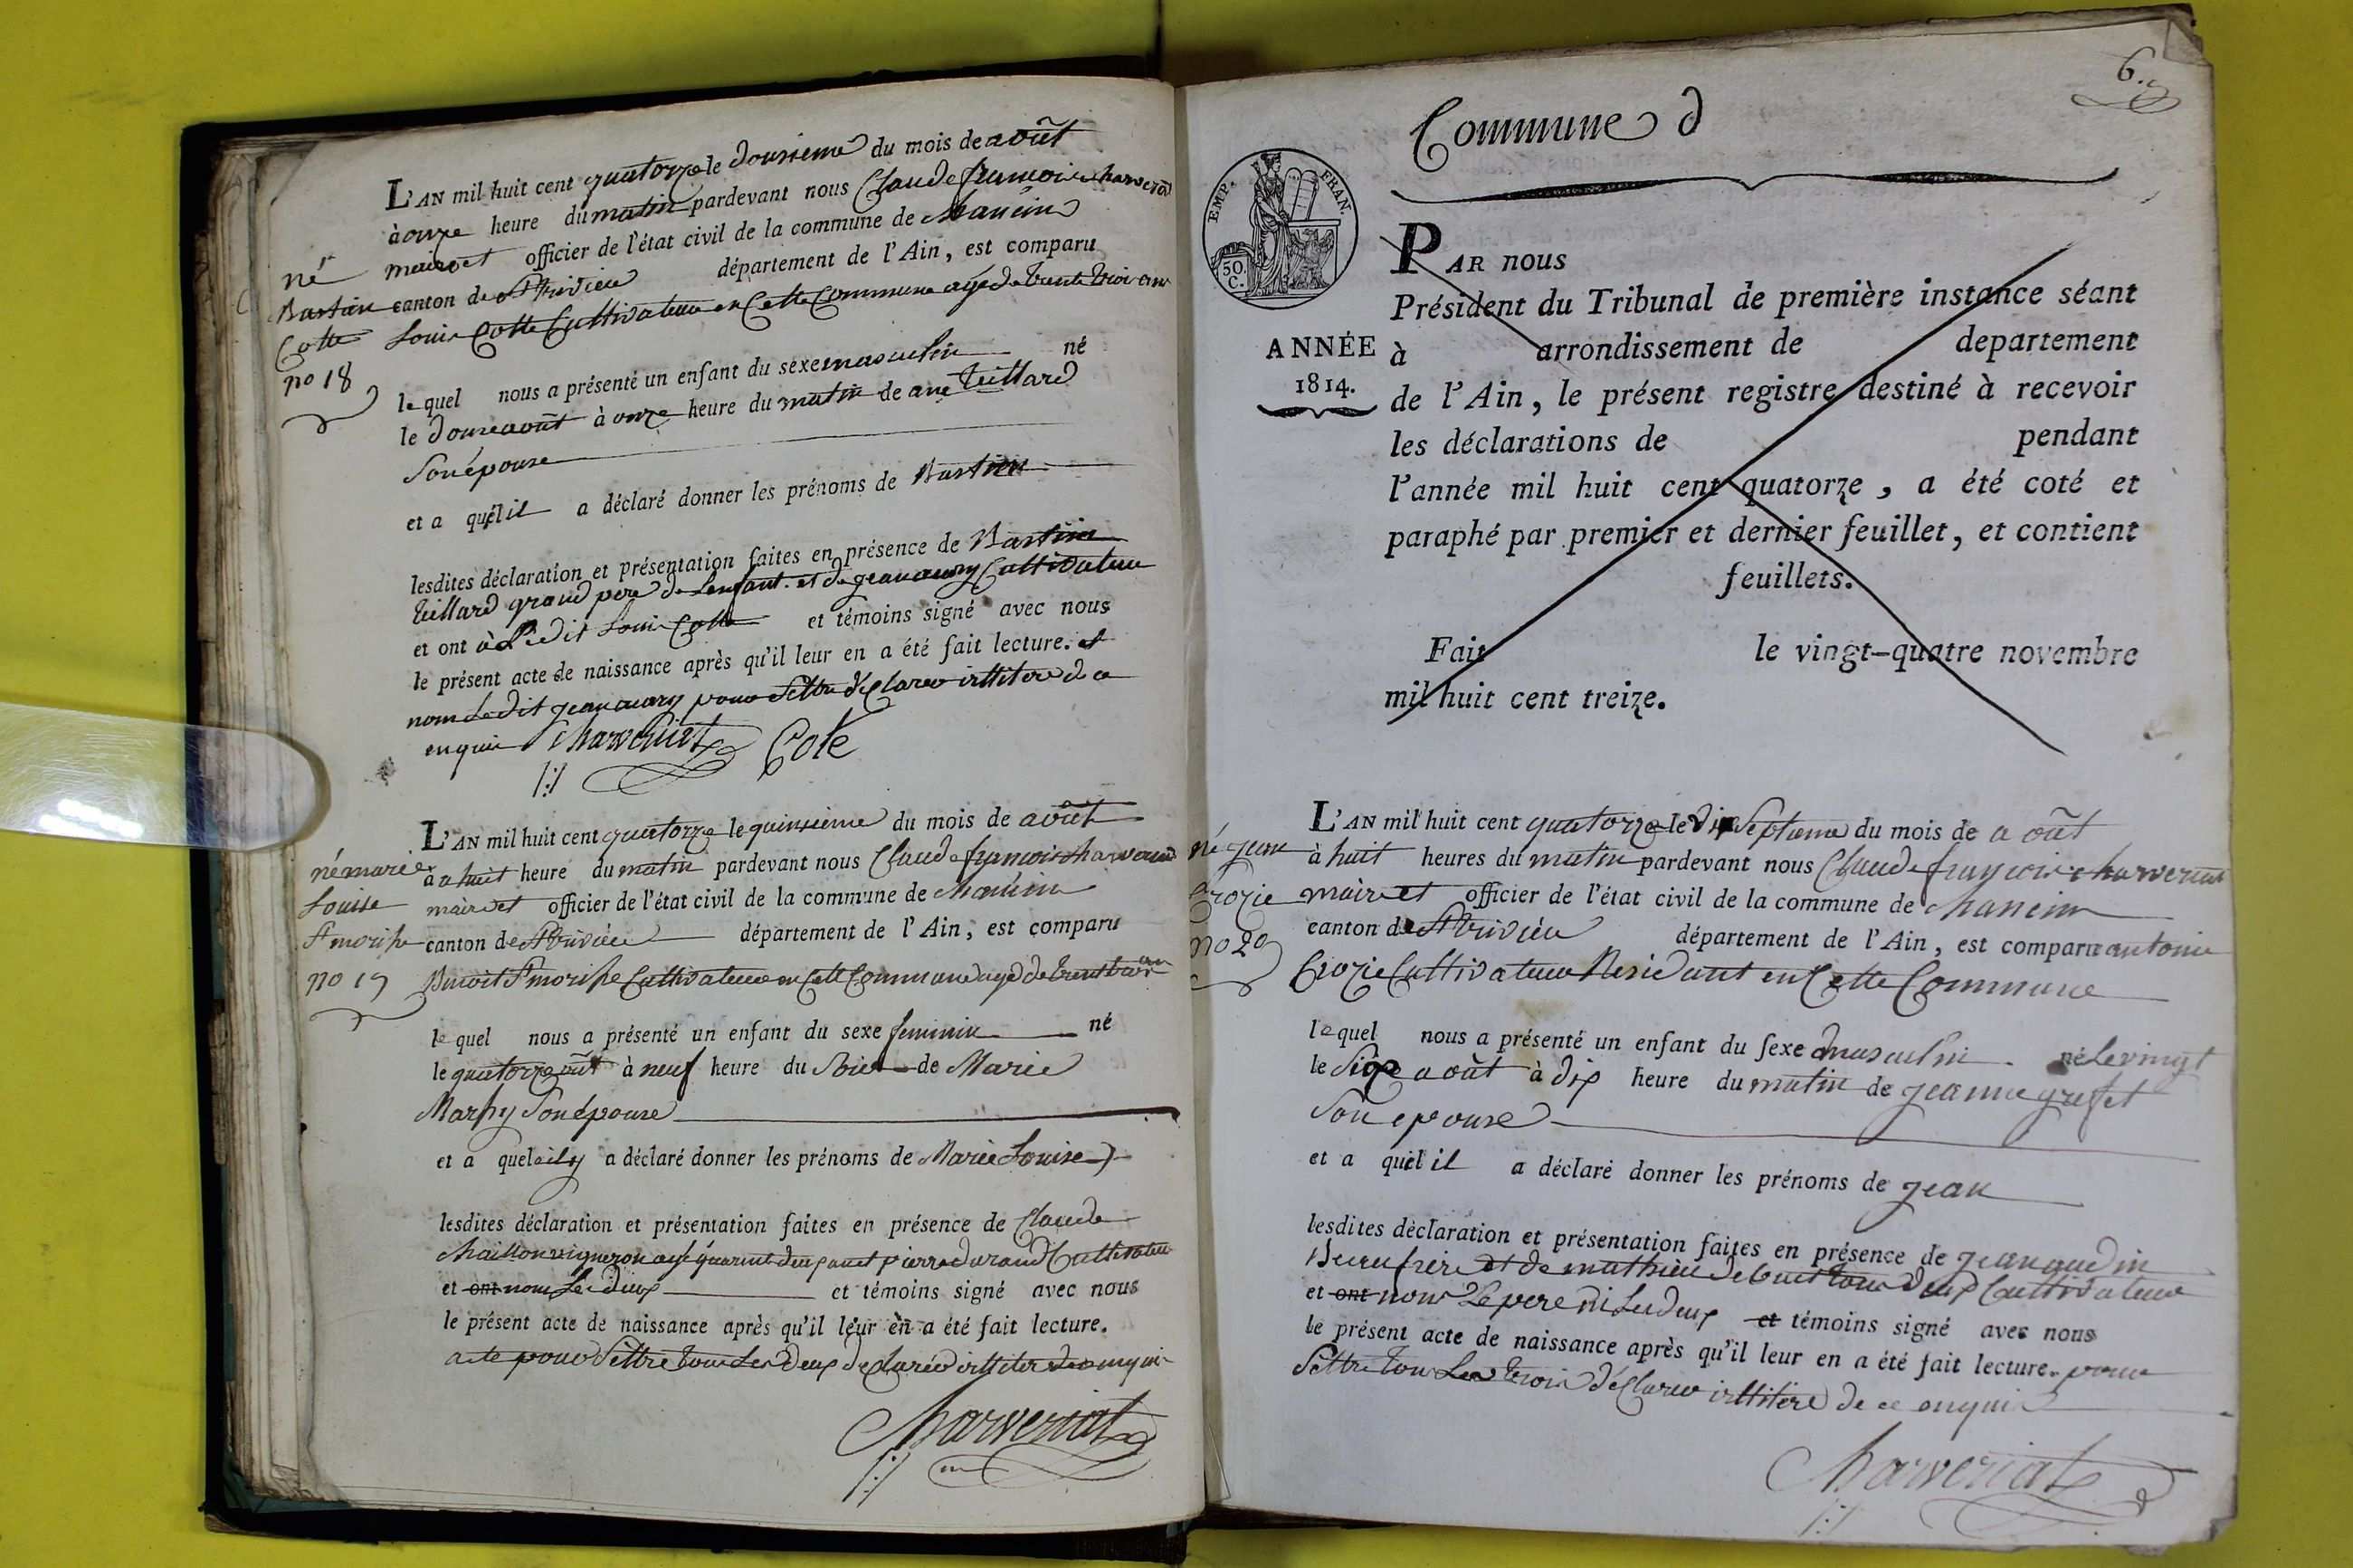 L'AN mil huit cent quatorze le dousieme du mois de août
à onze heure du matin pardevant nous Claude francois charveriat
maire et officier de l'état civil de la commune de chaneins
canton de St trivier département de l'Ain, est comparu
Louis Cotte Cultivateur en Cette Commune agé de trente trois ans
né
Bastien
Cotte
no 18
le quel nous a présenté un enfant du sexe masculin né
le douze août à onze heure du matin de ane teillard
Son épouse
et a quel il a déclaré donner les prénoms de Bastien
lesdites déclaration et présentation faites en présence de Bastien
teillard grand pere de Lenfant et de jean aury Cultivateur
et ont Ledit Louis Cotte et témoins signé avec nous
le présent acte de naissance après qu'il leur en a été fait lecture. et
nom Le dit jean aury pour Settre déClarer ittitere de ce
enquis Charveriat Cote
L'AN mil huit cent quatorze le quinsieme du mois de août
à a huit heure du matin pardevant nous Claude francois charveriat
maire et officier de l'état civil de la commune de chaneins
canton de St trivier département de l'Ain, est comparu
Benoit St morise Cultivateur en Cette Commune agé de trente trois an
né marie
Louise
St morise
no 19
le quel nous a présenté un enfant du sexe feminin né
le quatorze oût à neuf heure du Soir de Marie
Marphy Son épouse
et a quel il y a déclaré donner les prénoms de Marie Louise
lesdites déclaration et présentation faites en présence de Claude
Chaillon vigneron agé quarente deux an et pierre durand Cultivateur
et ont nom Les deux et témoins signé avec nous
le présent acte de naissance après qu'il leur en a été fait lecture.
acte pour Settre tous Les deux déClarer ittiter de enquis
Charveriat
6.
Commune d
EMP. FRAN.
50. C.
ANNÉE
1814.
PAR nous
Président du Tribunal de première instance séant
à arrondissement de departement
de l'Ain, le présent registre destiné à recevoir
les déclarations de pendant
l'année mil huit cent quatorze, a été coté et
paraphé par premier et dernier feuillet, et contient
feuillets.
Fait le vingt-quatre novembre
mil huit cent treize.
L'AN mil huit cent quatorze le dix Septieme du mois de a oût
à huit heures du matin pardevant nous Claude françois charveriat
maire et officier de l'état civil de la commune de chaneins
canton de St trivier département de l'Ain, est comparu antoine
Crozie Cultivateur Residant en Cette Commune
né jean
Crozie
no 20
le quel nous a présenté un enfant du sexe masculin né Le vingt
le Sixe août à dix heure du matin de jeanne grefet
Son epouse
et a quel il a déclaré donner les prénoms de jean
lesdites déclaration et présentation faites en présence de jean gudin
Beau frere et de mathieu debuit tous deux Cultivateur
et ont nom Le pere ni Les deux et témoins signé avec nous
le présent acte de naissance après qu'il leur en a été fait lecture. pour
Settre tous Les trois déClarer ittitere de ce enquis
Charveriat